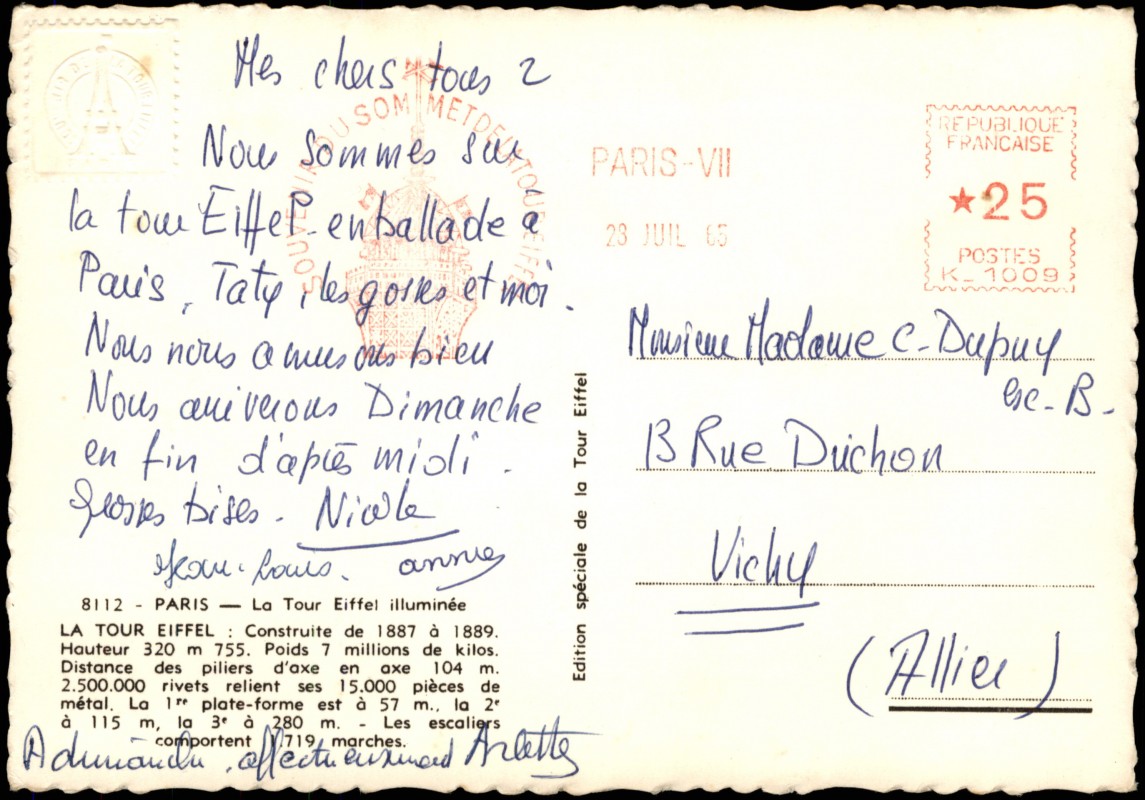 Mes chers tous 2
Nous sommes sur
la tour Eiffel en ballade à
Paris, Taty, les gosses et moi.
Nous nous amusons bien
Nous arriverons Dimanche
en fin d'après midi.
Grosses bises. Nicole
Jean-Louis. annie
8112 - PARIS — La Tour Eiffel illuminée
LA TOUR EIFFEL : Construite de 1887 à 1889.
Hauteur 320 m 755. Poids 7 millions de kilos.
Distance des piliers d'axe en axe 104 m.
2.500.000 rivets relient ses 15.000 pièces de
métal. La 1re plate-forme est à 57 m., la 2e
à 115 m, la 3e à 280 m. - Les escaliers
comportent 1.719 marches.
affectueusement Arlette
SOUVENIR DU SOMMET DE LA TOUR EIFFEL
Edition spéciale de la Tour Eiffel
PARIS-VII
23 JUIL 65
REPUBLIQUE
FRANCAISE
★25
POSTES
K_1009
Monsieur Madame C-Dupuy
esc-B-
13 Rue Duchon
Vichy
(Allier)